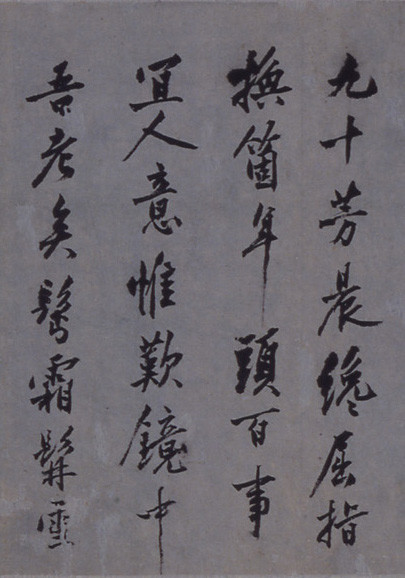 九十芳晨纔屈指
撫箇年頭百事
宜人意惟歎鏡中
吾老矣鬢霜髯雪